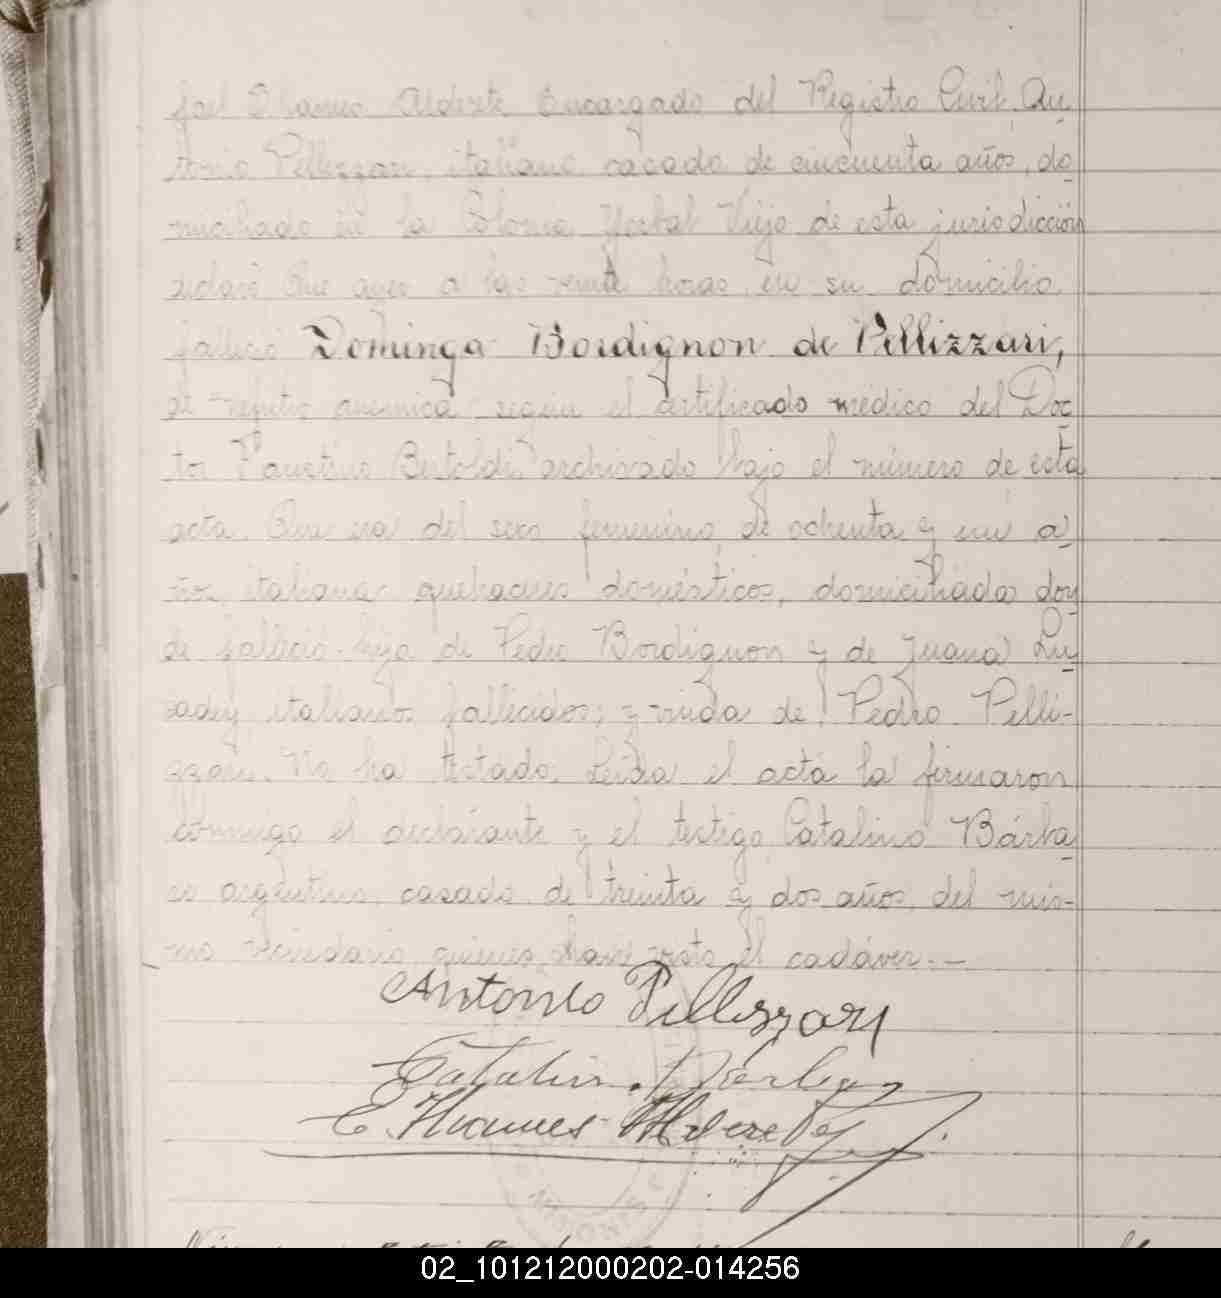 Alderete Encargado del Registro Civil, An-
tonio Pellizzari, italiano, casado de cincuenta años, do-
miciliado en la Colonia Yerbal Viejo de esta jurisdicción
declaró: Que ayer a las veinte horas, en su domicilio
falleció Dominga Bordignon de Pellizzari,
de nefritis anémica según el certificado médico del Doc-
tor Faustino Bertoldi, archivado bajo el número de esta
acta. Que era del sexo femenino, de ochenta y un a-
ños, italiana, quehaceres domésticos, domiciliada don-
de falleció. hija de Pedro Bordignon y de Juana
italianos, fallecidos; y viuda de Pedro Pelli-
zzari. No ha testado. Leída el acta la firmaron
conmigo el declarante y el testigo Catalino Bárba-
ro argentino, casado, de treinta y dos años, del mis-
mo vecindario, quienes han visto el cadáver.—
Antonio Pellizzari
Catalin
E. Alderete
MISIONES
02_101212000202-014256